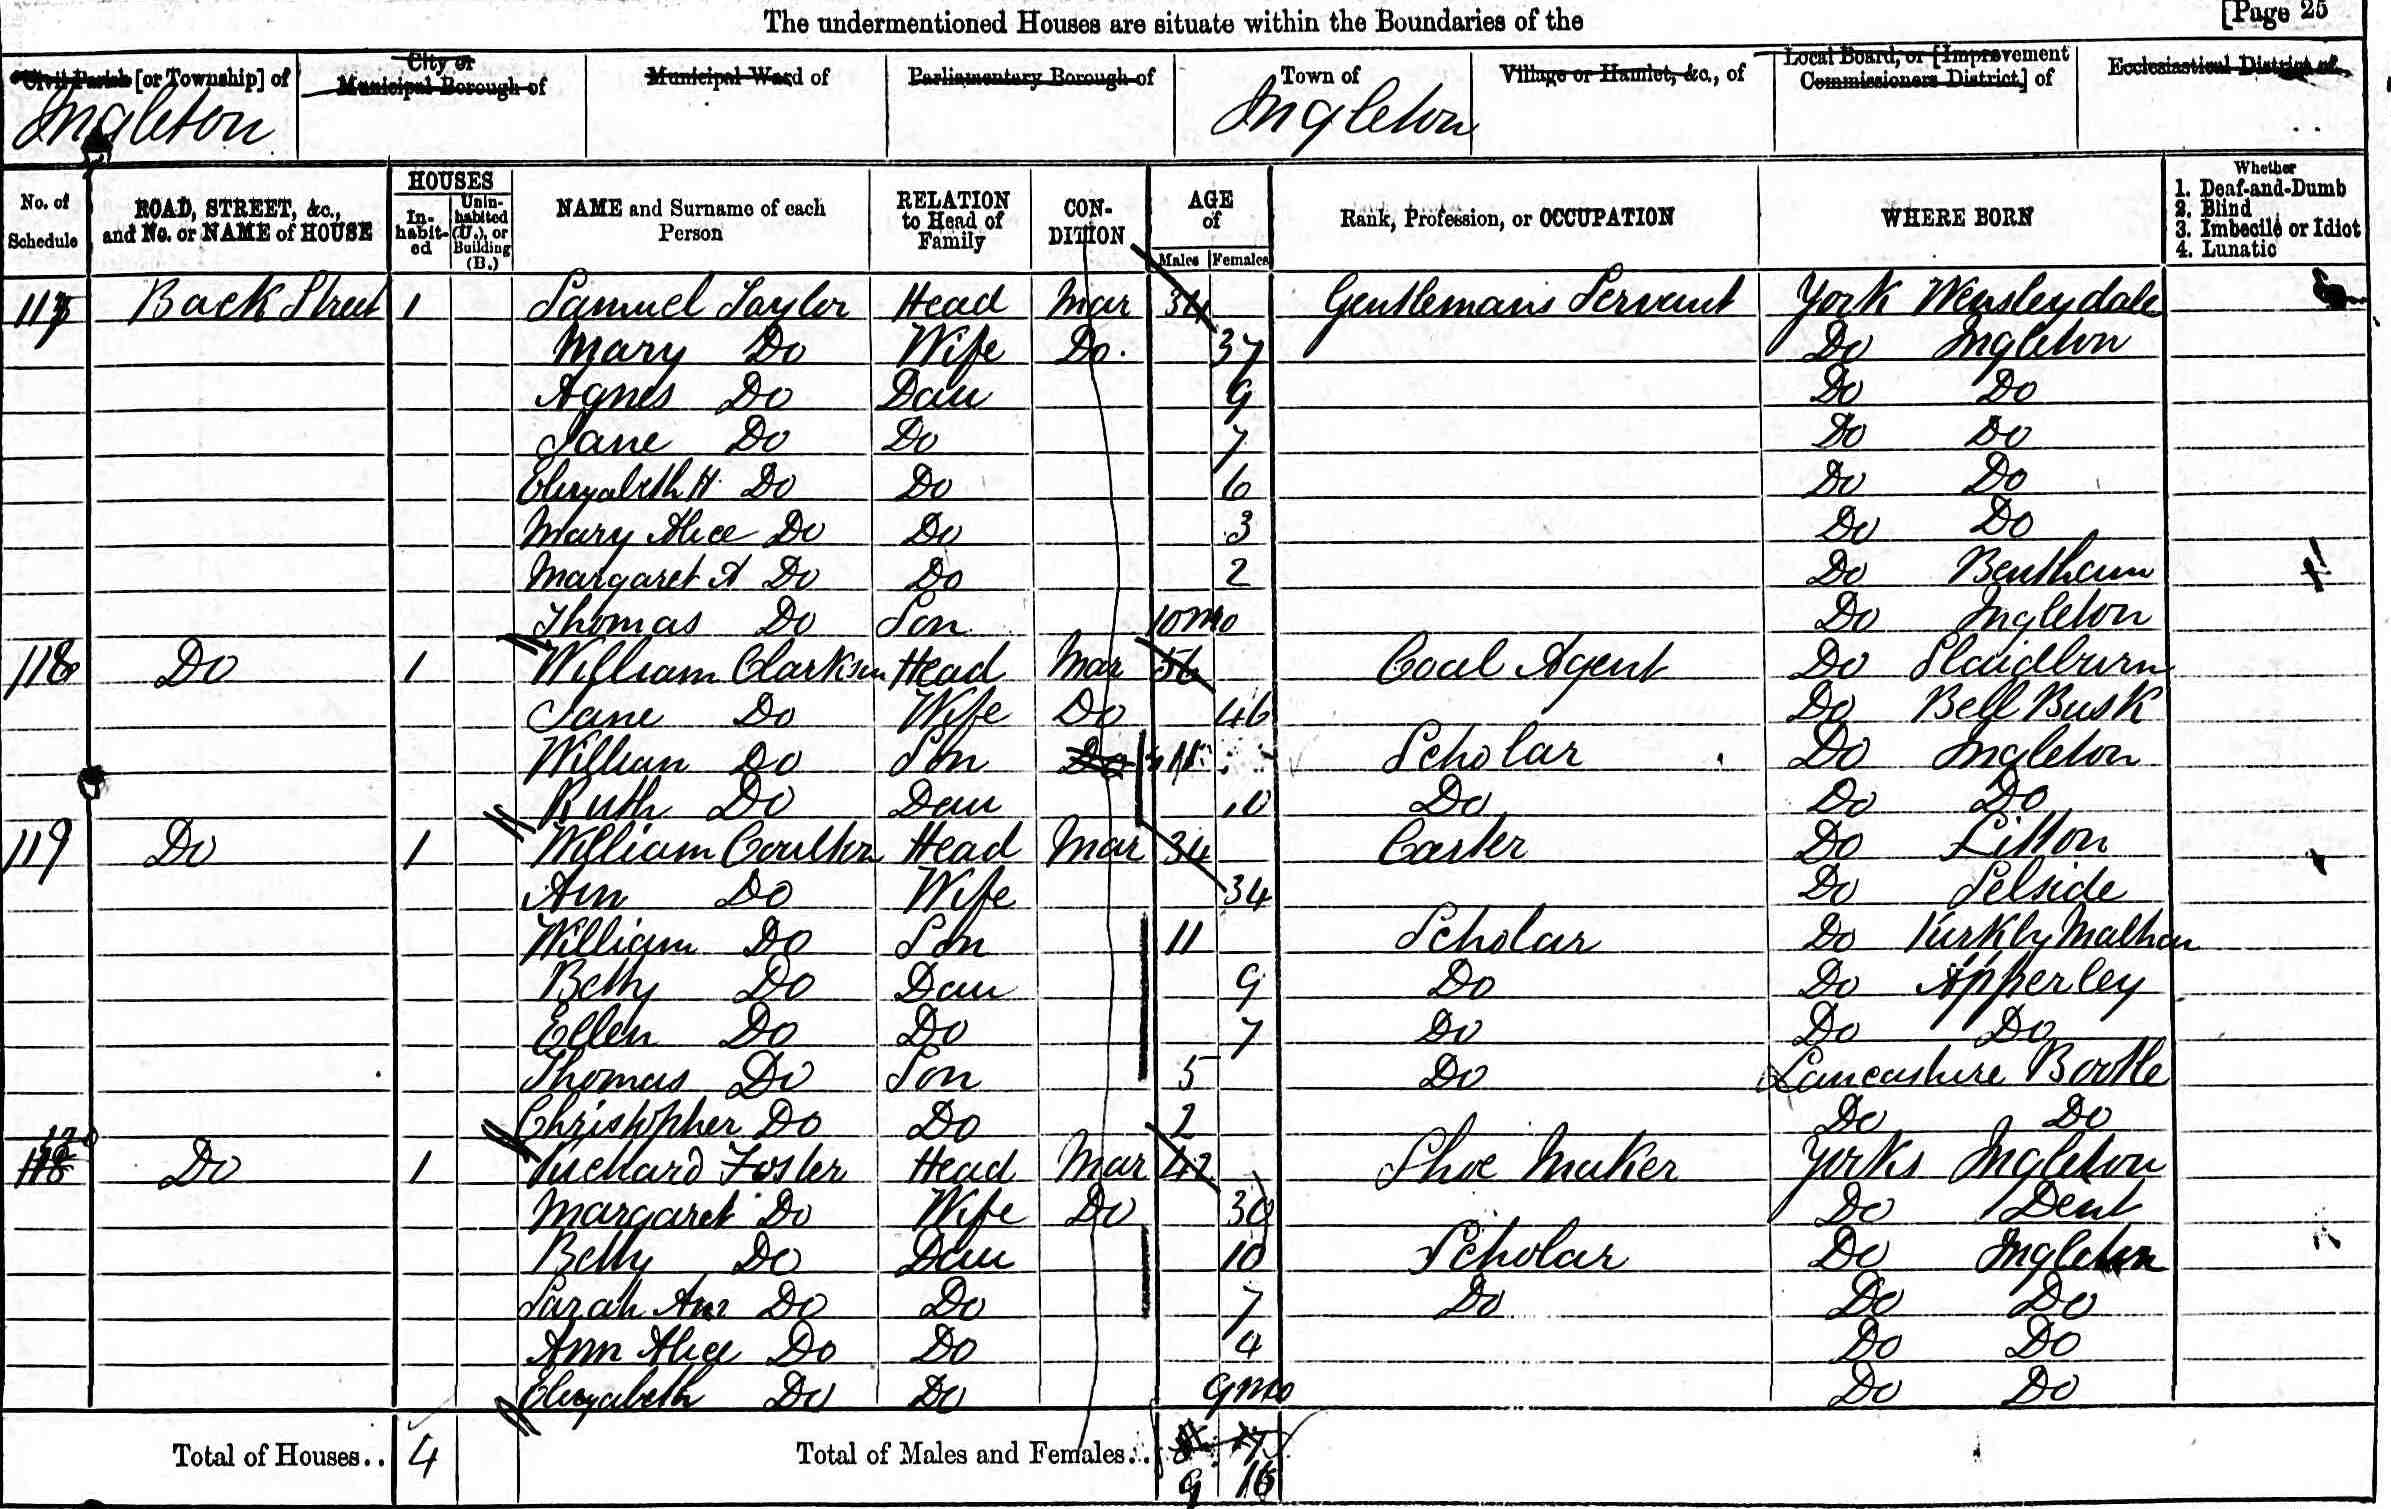 The undermentioned Houses are situate within the Boundaries of the [Page 25
Civil Parish [or Township] of City or Municipal Borough of Municipal Ward of Parliamentary Borough of Town of Village or Hamlet, &c., of Local Board, or [Improvement Commissioners District] of Ecclesiastical District of
Ingleton Ingleton
No. of Schedule ROAD, STREET, &c., and No. or NAME of HOUSE HOUSES Inhabited Uninhabited (U.), or Building (B.) NAME and Surname of each Person RELATION to Head of Family CONDITION AGE of Males Females Rank, Profession, or OCCUPATION WHERE BORN Whether 1. Deaf-and-Dumb 2. Blind 3. Imbecile or Idiot 4. Lunatic
Back Street 1 Samuel Taylor Head Mar 34 Gentlemans Servant York Wensleydale
Mary Do Wife Do. 37 Do Ingleton
Agnes Do Dau 9 Do Do
Jane Do Do 7 Do Do
Elizabeth H Do Do 6 Do Do
Mary Alice Do Do 3 Do Do
Margaret A Do Do 2 Do Bentham
Thomas Do Son 10mo Do Ingleton
118 Do 1 William Clarkson Head Mar 56 Coal Agent Do Slaidburn
Jane Do Wife Do 46 Do Bell Busk
William Do Son Do 11 Scholar Do Ingleton
Ruth Do Dau 10 Do Do Do
119 Do 1 William Coulton Head Mar 34 Carter Do Litton
Ann Do Wife 34 Do Selside
William Do Son 11 Scholar Do Kirkby Malham
Betty Do Dau 9 Do Do Apperley
Ellen Do Do 7 Do Do Do
Thomas Do Son 5 Do Lancashire Bootle
Christopher Do Do 2 Do Do
120 118 Do 1 Richard Foster Head Mar 42 Shoe Maker Yorks Ingleton
Margaret Do Wife Do 30 Do Dent
Betty Do Dau 10 Scholar Do Ingleton
Sarah Ann Do Do 7 Do Do Do
Ann Alice Do Do 4 Do Do
Elizabeth Do Do 9mo Do Do
Total of Houses.. 4 Total of Males and Females.. 9 16